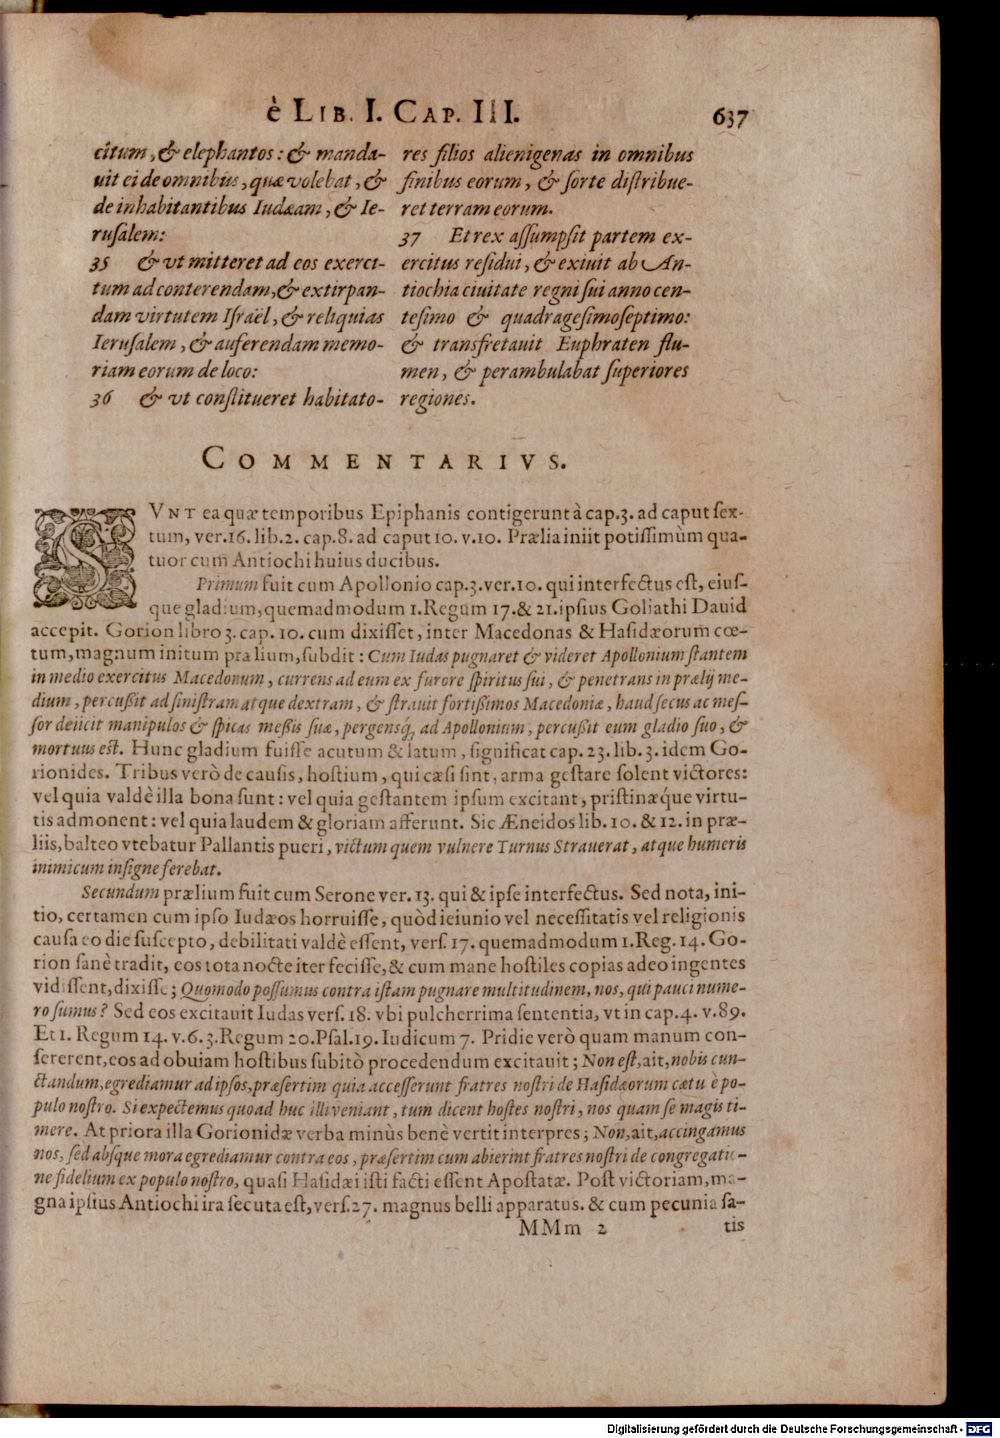 è LIB. I. CAP. III. 637
citum, & elephantos: & manda-
uit ei de omnibus, quæ volebat, &
de inhabitantibus Iudæam, & Ie-
rusalem:
35 & vt mitteret ad eos exerci-
tum ad conterendam, & extirpan-
dam virtutem Israël, & reliquias
Ierusalem, & auferendam memo-
riam eorum de loco:
36 & vt constitueret habitato-
res filios alienigenas in omnibus
finibus eorum, & sorte distribue-
ret terram eorum.
37 Et rex assumpsit partem ex-
ercitus residui, & exiuit ab An-
tiochia ciuitate regni sui anno cen-
tesimo & quadragesimoseptimo:
& transfretauit Euphraten flu-
men, & perambulabat superiores
regiones.
COMMENTARIVS.
SVNT ea quæ temporibus Epiphanis contigerunt à cap.3. ad caput sex-
tum, ver.16. lib.2. cap.8. ad caput 10. v.10. Prælia iniit potissimùm qua-
tuor cum Antiochi huius ducibus.
Primum fuit cum Apollonio cap.3.ver.10. qui interfectus est, eius-
que gladium, quemadmodum 1.Regum 17.& 21.ipsius Goliathi Dauid
accepit. Gorion libro 3. cap. 10. cum dixisset, inter Macedonas & Hasidæorum cœ-
tum, magnum initum prælium, subdit: Cum Iudas pugnaret & videret Apollonium stantem
in medio exercitus Macedonum, currens ad eum ex furore spiritus sui, & penetrans in prælij me-
dium, percußit ad sinistram atque dextram, & strauit fortißimos Macedoniæ, haud secus ac mes-
sor deiicit manipulos & spicas meßis suæ, pergensq́, ad Apollonium, percußit eum gladio suo, &
mortuus est. Hunc gladium fuisse acutum & latum, significat cap. 23. lib. 3. idem Go-
rionides. Tribus verò de causis, hostium, qui cæsi sint, arma gestare solent victores:
vel quia valdè illa bona sunt: vel quia gestantem ipsum excitant, pristinæque virtu-
tis admonent: vel quia laudem & gloriam afferunt. Sic Æneidos lib. 10. & 12. in præ-
liis, balteo vtebatur Pallantis pueri, victum quem vulnere Turnus Strauerat, atque humeris
inimicum insigne ferebat.
Secundum prælium fuit cum Serone ver. 13. qui & ipse interfectus. Sed nota, ini-
tio, certamen cum ipso Iudæos horruisse, quòd ieiunio vel necessitatis vel religionis
causa eo die suscepto, debilitati valdè essent, vers. 17. quemadmodum 1.Reg. 14. Go-
rion sanè tradit, eos tota nocte iter fecisse, & cum mane hostiles copias adeo ingentes
vidissent, dixisse; Quomodo possumus contra istam pugnare multitudinem, nos, qui pauci nume-
ro sumus? Sed eos excitauit Iudas vers. 18. vbi pulcherrima sententia, vt in cap.4. v.89.
Et 1. Regum 14. v.6. 3.Regum 20.Psal.19. Iudicum 7. Pridie verò quam manum con-
sererent, eos ad obuiam hostibus subitò procedendum excitauit; Non est, ait, nobis cun-
ctandum, egrediamur ad ipsos, præsertim quia accesserunt fratres nostri de Hasidæorum cœtu è po-
pulo nostro. Si expectemus quoad huc illi veniant, tum dicent hostes nostri, nos quam se magis ti-
mere. At priora illa Gorionidæ verba minùs benè vertit interpres; Non, ait, accingamus
nos, sed absque mora egrediamur contra eos, præsertim cum abierint fratres nostri de congregatio-
ne fidelium ex populo nostro, quasi Hasidæi isti facti essent Apostatæ. Post victoriam, ma-
gna ipsius Antiochi ira secuta est, vers.27. magnus belli apparatus. & cum pecunia sa-
MMm 2 tis
Digitalisierung gefördert durch die Deutsche Forschungsgemeinschaft - DFG